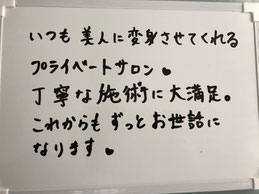 いつも 美人に変身させてくれる
プライベートサロン♥
丁寧な施術に大満足。
これからも ずっとお世話に
なります♥